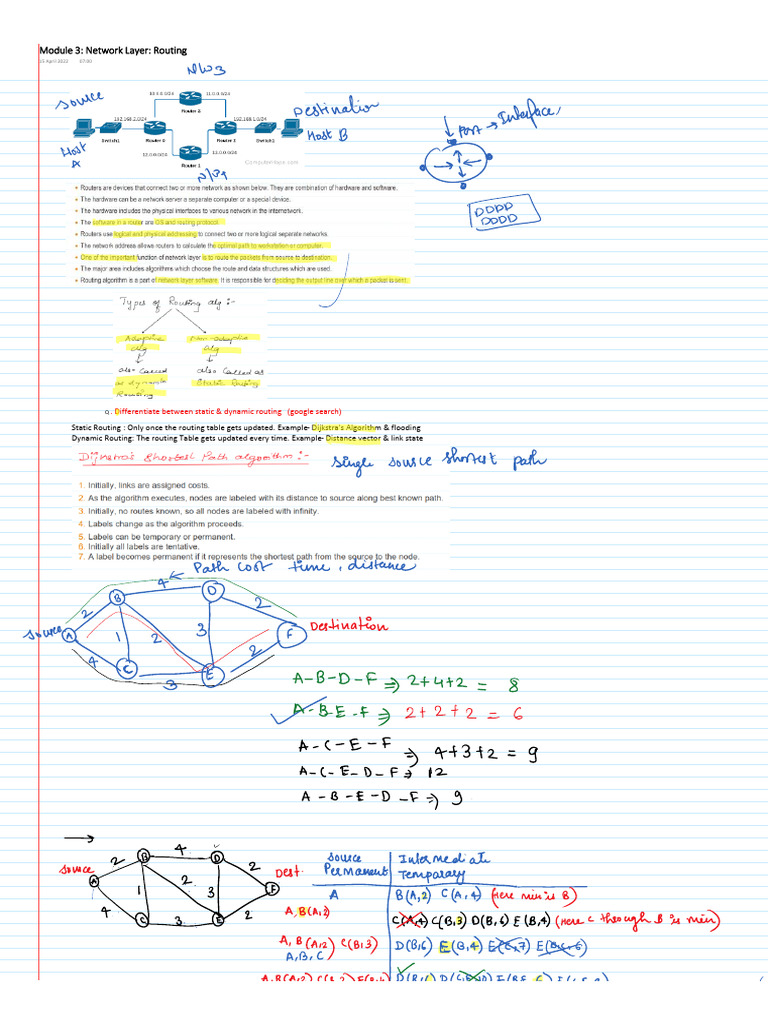 Module 3: Network Layer: Routing
15 April 2023 07:00
NW3
Source
11.0.0.0/24
Router 3
Destination
192.168.2.0/24
192.168.1.0/24
Switch1
Router 0
Switch2
Host B
Host A
12.0.0.0/24
13.0.0.0/24
Port → Interface
DDDD
DDDD
Routers are devices that connect two or more network as shown below. They are combination of hardware and software.
The hardware can be a network server a separate computer or a special device.
The hardware includes the physical interfaces to various network in the internetwork.
The software in a router are OS and routing protocol.
Routers use logical and physical addressing to connect two or more logical separate networks.
The network address allows routers to calculate the optimal path to workstation or computer.
One of the important function of network layer is to route the packets from source to destination.
The major area includes algorithms which choose the route and data structures which are used.
Routing algorithm is a part of network layer software. It is responsible for deciding the output line over which a packet is sent.
Types of Routing alg :-
Adaptive alg
Non-adaptive alg
also called as dynamic Routing
also called as Static Routing
q. Differentiate between static & dynamic routing (google search)
Static Routing : Only once the routing table gets updated. Example- Dijkstra's Algorithm & flooding
Dynamic Routing: The routing Table gets updated every time. Example- Distance vector & link state
Dijkstra's Shortest Path algorithm :-
Single source shortest path
1. Initially, links are assigned costs.
2. As the algorithm executes, nodes are labeled with its distance to source along best known path.
3. Initially, no routes known, so all nodes are labeled with infinity.
4. Labels change as the algorithm proceeds.
5. Labels can be temporary or permanent.
6. Initially all labels are tentative.
7. A label becomes permanent if it represents the shortest path from the source to the node.
← Path cost time, distance
4
B D
2 2
Source A 1 2 3 F Destination
4 2
C 3 E
A-B-D-F ⇒ 2+4+2 = 8
A-B-E-F ⇒ 2+2+2 = 6
A-C-E-F ⇒ 4+3+2 = 9
A-C-E-D-F ⇒ 12
A-B-E-D-F ⇒ 9
B 4 D
2 2
Source A 1 2 3 F Dest.
4 2
C 3 E
Source Permanent Intermediate Temporary
A B(A,2) C(A,4) (Here min is B)
A, B(A,2) C(A,4) C(B,3) D(B,6) E(B,4) (Here C through B is min)
A, B(A,2) C(B,3) D(B,6) E(B,4) E(C,7)
A, B, C